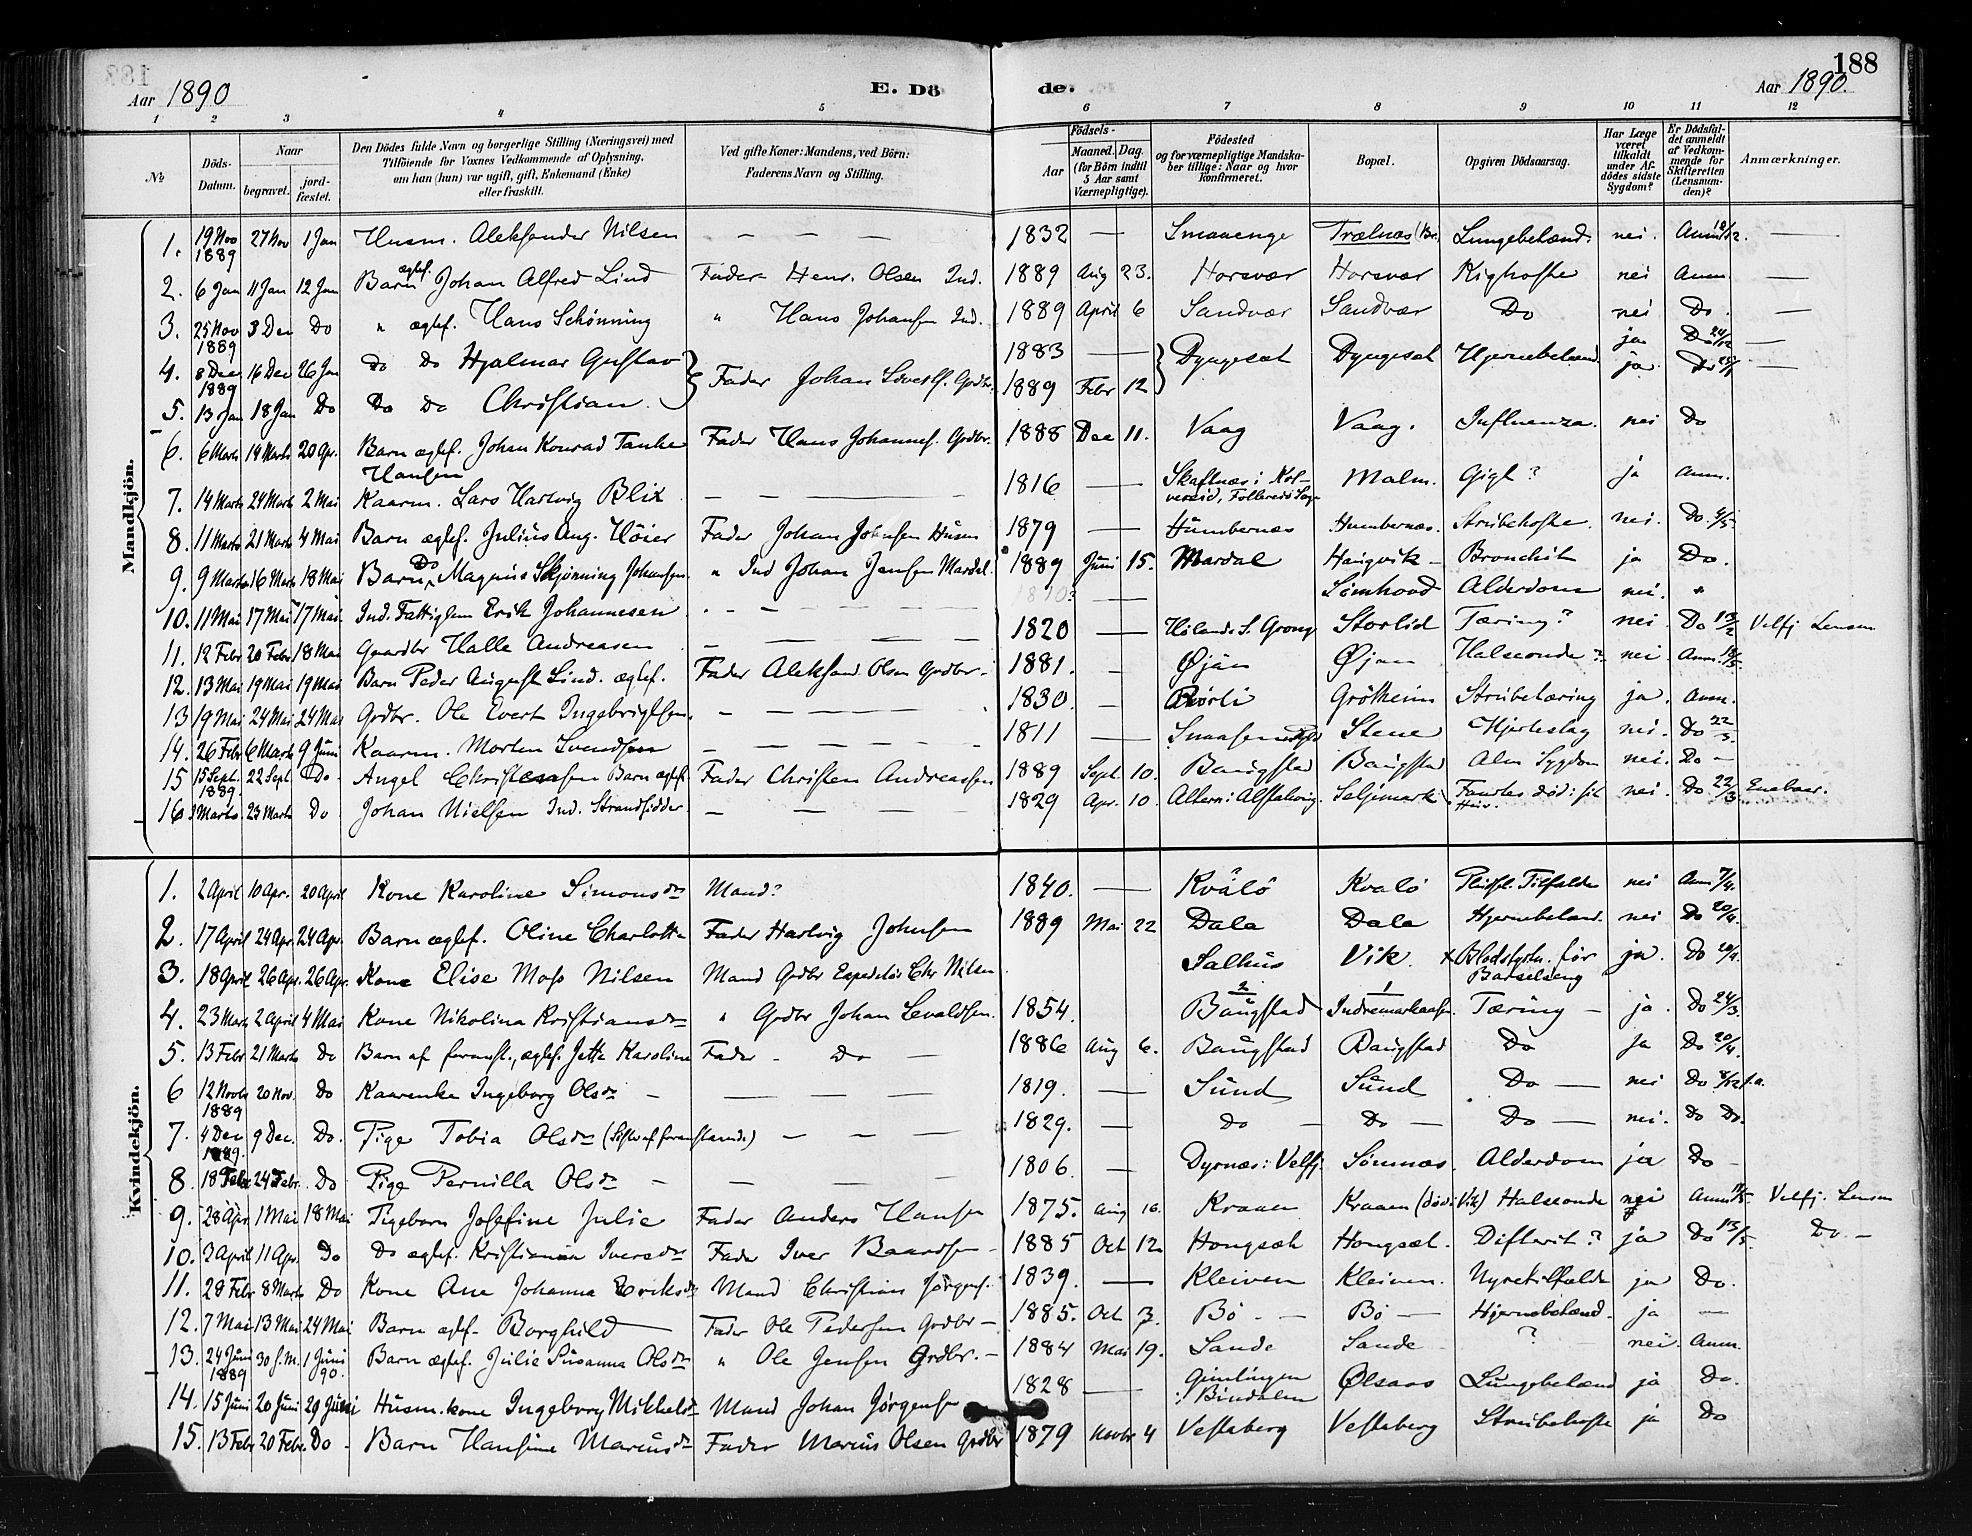 188
Aar 1890 E. Döde. Aar 1890.
1 2 3 4 5 6 7 8 9 10 11 12
№ Döds-Datum. Naar begravet. jordfæstet. Den Dödes fulde Navn og borgerlige Stilling (Næringsvei) med Tilföiende for Voxnes Vedkommende af Oplysning, om han (hun) var ugift, gift, Enkemand (Enke) eller fraskilt. Ved gifte Koner: Mandens, ved Börn: Faderens Navn og Stilling. Födsels- Aar Maaned. Dag. (for Börn indtil 5 Aar samt Værnepligtige). Födested og for værnepligtige Mandskaber tillige: Naar og hvor konfirmeret. Bopæl. Opgiven Dödsaarsag. Har Læge været tilkaldt under Afdödes sidste Sygdom? Er Dödsfaldet anmeldt af Vedkommende for Skifteretten (Lensmanden)? Anmærkninger.
Mandkjön.
1. 19 Nov 1889 27 Nov 1 Jan Husm. Aleksander Nilsen — — — 1832 — Smaaenge Trælnæs (Br. Lungebetænd. nei. Anm 18/12. —
2. 6 Jan 11 Jan 12 Jan Barn ægtef. Johan Alfred Lind Fader Henr. Olsen Ind. 1889 Aug 23. Horsvær Horsvær Kighoste nei Anm. —
3. 25 Nov 1889 3 Dec Do " ægtef. Hans Schönning " Hans Johansen Ind. 1889 April 6 Sandvær Sandvær Do nei Do. —
4. 8 Dec 1889 16 Dec 26 Jan Do Do Hjalmar Gustav } Fader Johan Grdbr. 1883 — } Dyngesæt Dyngesæt Hjernebetænd. ja Do 24/12 —
5. 13 Jan 18 Jan Do Do Do Christian. 1889 Febr 12 ja. Do 25/1 —
6. 6 Marts 14 Marts 20 Apr. Barn ægtef. Johan Konrad Tanke Hansen Fader Hans Johannes. Grdbr. 1888 Dec 11. Vaag Vaag. Influenza. nei Do
7. 14 Marts 24 Marts 2 Mai Kaarm. Lars Hartvig Blix — — — — 1816 — Skaftnæs i Kolvereid, Malm. Gigt? ja Anm.
8. 11 Marts 21 Marts 4 Mai Barn ægtef. Julius Aug. Höier Fader Johan Johnsen Husm 1879 — Humbernæs Humbernæs. Strubehoste. nei. Do. 4/5
9. 9 Marts 16 Marts 18 Mai Barn Do Magnus Skjönning Johansen " Ind Johan Jensen Mardal 1889 Juni 15. Mardal Haugvik — Bronchit ja Do.
10. 11 Mai 17 Mai 17 Mai. Ind. Fattiglem Erik Johannesen — — — Sömhovd Alderdom nei. "
11. 12 Febr 20 Febr 18 Mai Gaardbr Halle Andreasen — — — 1820 — Hölands S. Grong Storlid Tæring? nei. Do 13/2 Velfj Lensm
12. 13 Mai 19 Mai 19 Mai Barn Peder August Lind. ægtef. Fader Aleksand. Olsen Grdbr. 1881. — Øjan Øjan Halseonde? nei Anm. 18/5.
13 19 Mai 24 Mai 24 Mai Grdbr. Ole Evert Ingebrigtsen. — — — — 1830. — Rörli Grötheim Strubetæring ja. Anm.
14. 26 Febr 6 Marts 9 Juni Kaarm. Morten Svendsen — — — — 1811 — Stene Hjerteslag nei. Do 22/3.
15 15 Sept. 1889. 22 Sept. Do. Angel Christensen Barn ægtef. Fader Christen Andreassen 1889 Sept 10. Baugstad Baugstad Alm Sygdom nei. Do —
16 Marts. 23 Marts Do Johan Nielsen Ind. Strandsidder — — — 1829 Apr. 10. Altern i Alstahoug. Seljemark Fandtes död i sit Hus. nei. Do 22/3 Eneboer.
Kvindekjön.
1. 2 April 10 Apr. 20 April Kone Karoline Simonsdr Mand? 1840. — Kvalö Kvalö Pludsl. Tilfælde nei Anm 7/4.
2. 17 April 24 Apr. 24 Apr. Barn ægtef. Oline Charlotte Fader Hartvig Johnsen 1889 Mai 22 Dala Dala Hjernebetænd. nei Do 20/4.
3. 18 April 26 Apr. 26 Apr. Kone Elise Moss Nilsen Mand Grdbr Expeditör Chr Nilsen Salhus Vik. x Blodstyrtn. för Barselseng ja. Do 20/4.
4. 23 Marts 2 April 4 Mai Kone Nikolina Kristiansdr " Grdbr Johan Sevaldsen. 1854. 2 Baugstad 1 Indremarkaasen. Tæring — ja. Do 24/3.
5. 13 Febr 21 Marts Do Barn af foranst., ægtef. Jette Karoline Fader — Do — 1886 Aug 6. Baugstad Baugstad Do ja Do 20/4.
6 12 Novb 1889 20 Nov. Do Kaarenke Ingeborg Olsdr — — — — 1819. — Sund Sund Do — nei Do 8/12 f.a.
7. 4 Dec 1889. 9 Dec. Do. Pige Tobia Olsdr (Söster af foranstaaende) — — — 1829. — Do — Do — Do — nei. Do Do.
8. 18 Febr 24 Febr. Do Pige Pernilla Olsdr — — — — 1806. — Dyrnæs i Velfj. Sömnæs. Alderdom ja Do —
9. 28 Apr. 1 Mai 18 Mai Pigebarn Josefine Julie Fader Anders Hansen 1875. Aug 16. Kraaen Kraaen (död i Vik) Halseonde nei Anm 11/5 Velfj. Lensm
10. 3 April 11 Apr. Do Do ægtef. Kristianna Iversdr Fader Iver Baardsen — 1885 Oct 12 Hongsæt Hongsæt. Difterit? ja Do 13/5. Do. —
11. 28 Febr 8 Marts Do Kone Ane Johanna Eriksdr Mand Christian Jørgens. 1839. — Kleiven Kleiven. Nyretilfælde ja Do.
12. 7 Mai 13 Mai 24 Mai Barn ægtef. Borghild — Fader Ole Pedersen Grdbr — 1885. Oct 7. Bö — Bö — Hjernebetænd. ja —
13. 24 Juni 1889 30 s.M. 1 Juni 90. Barn ægtef. Julie Susanna Olsdr " Ole Jensen Grdbr. — 1884 Mai 19. Sande Sande — ? nei. Anm.
14. 15 Juni 20 Juni 29 Juni Husm.kone Ingeborg Mikkelsdr Mand Johan Jørgensen 1828 — Gimlingen i Bindalen Ølsaas Lungebetænd ja Do.
15. 13 Febr 20 Febr. Do. Barn Hansine Mariusdr Fader Marius Olsen Grdbr 1879 Novbr 4 Vestaberg Vestaberg Strubehoste ja Do